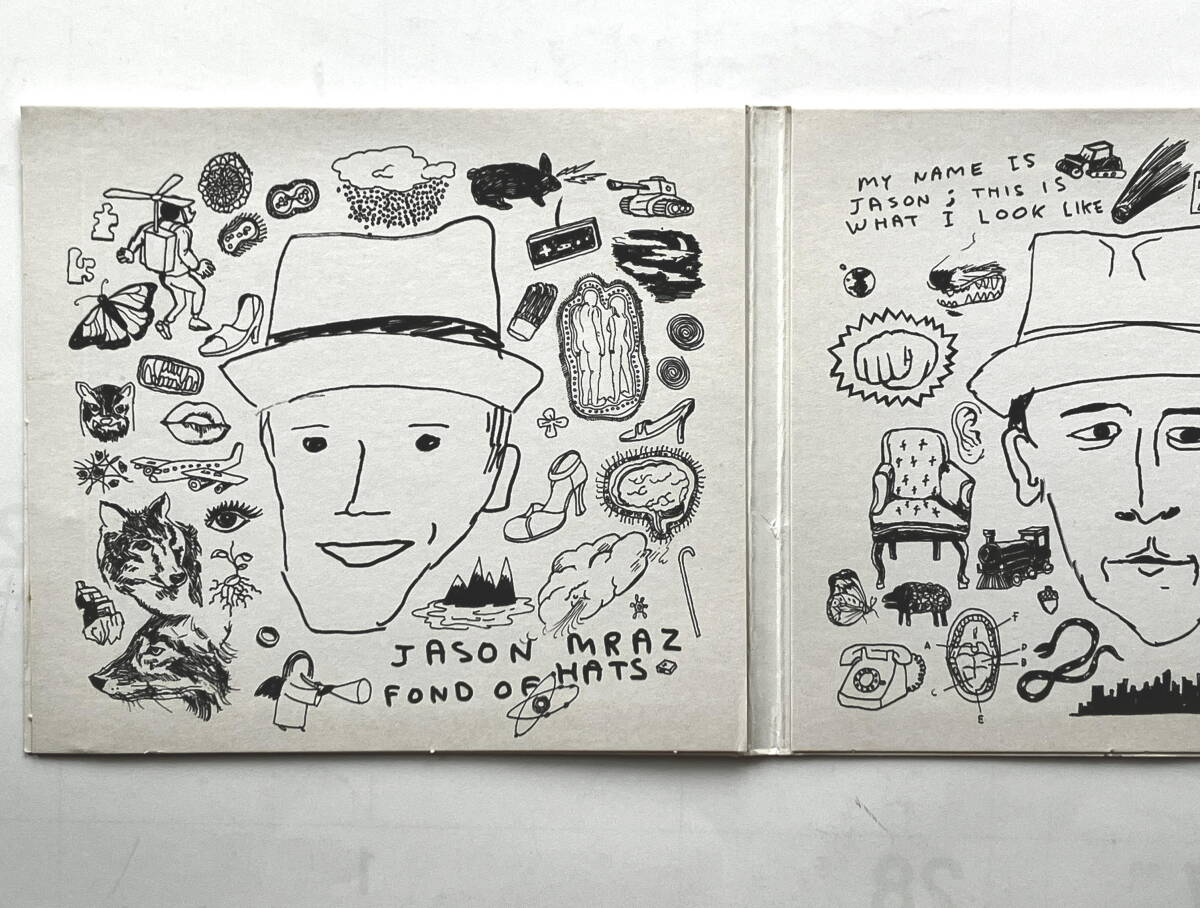 JASON MRAZ
FOND OF HATS
MY NAME IS
JASON; THIS IS
WHAT I LOOK LIKE
F
A
D
B
C
E
28